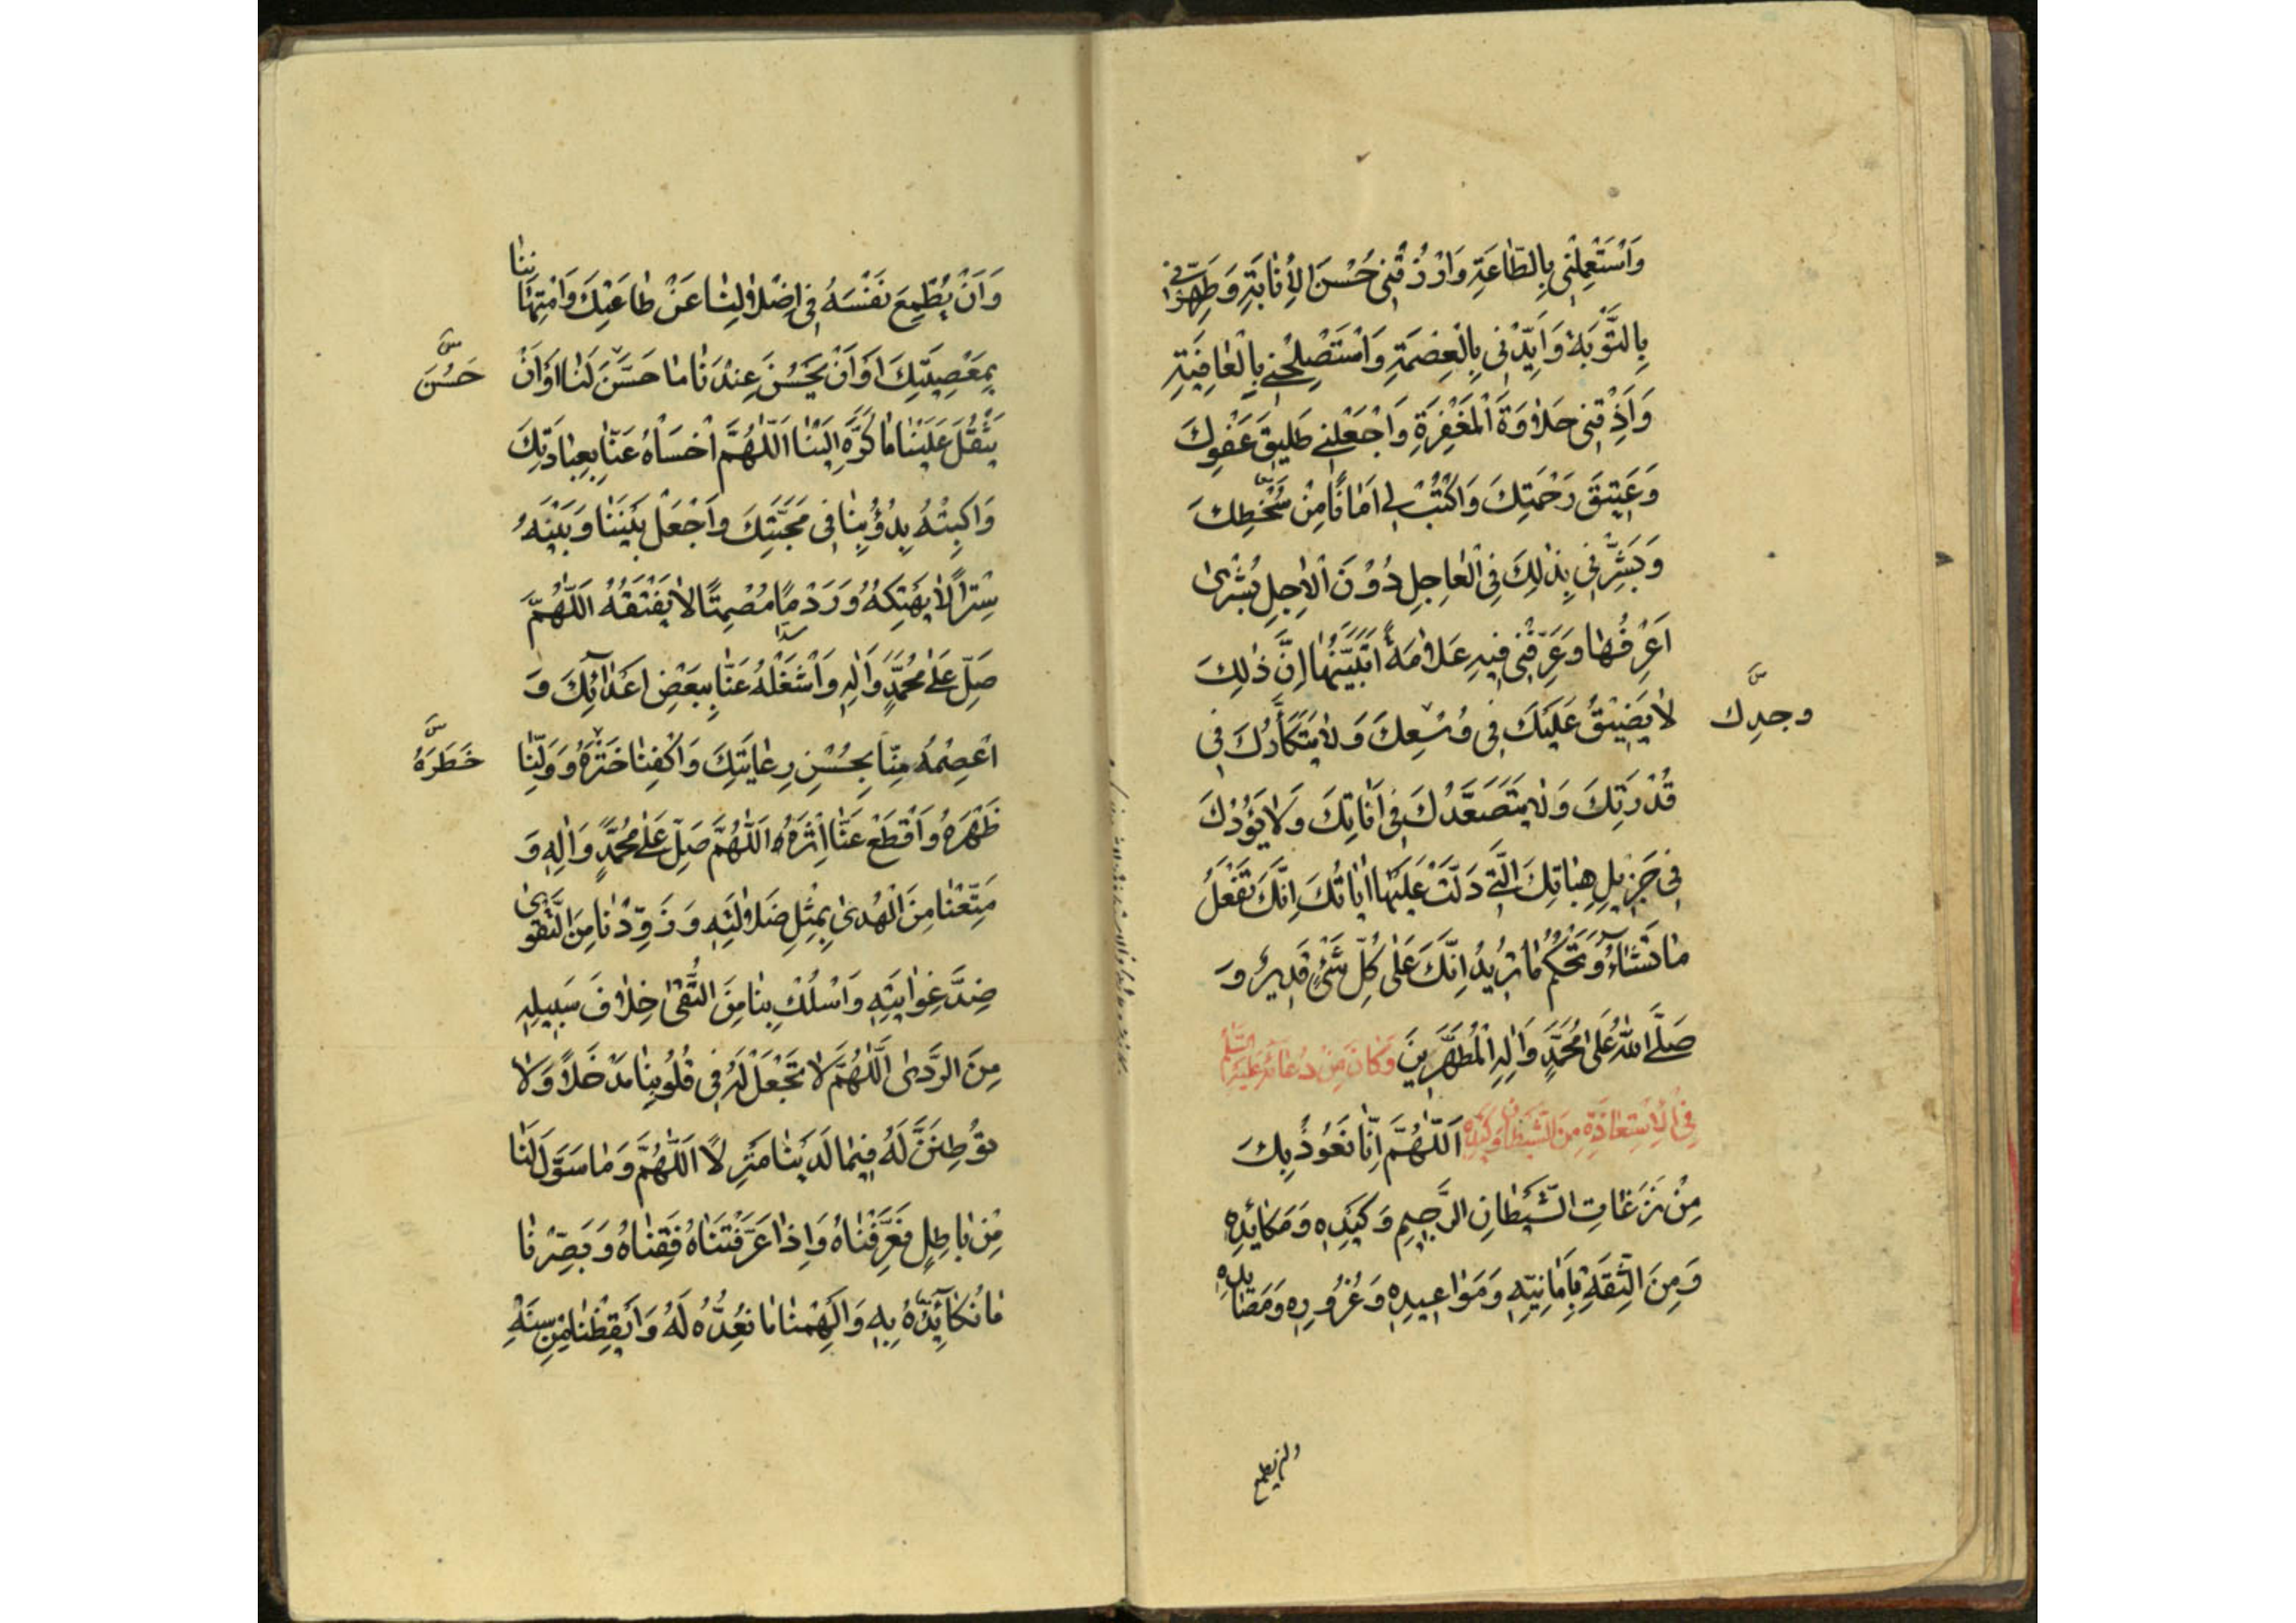 وَاسْتَعْمِلْنِي بِالطَّاعَةِ وَارْزُقْنِي حُسْنَ الْأِنَابَةِ وَطَهِّرْنِي
بِالتَّوْبَةِ وَأَيِّدْنِي بِالْعِصْمَةِ وَاسْتَصْلِحْنِي بِالْعَافِيَةِ
وَأَذِقْنِي حَلَاوَةَ الْمَغْفِرَةِ وَاجْعَلْنِي طَلِيقَ عَفْوِكَ
وَعَتِيقَ رَحْمَتِكَ وَاكْتُبْ لِي أَمَانًا مِنْ سُخْطِكَ
وَبَشِّرْنِي بِذٰلِكَ فِي الْعَاجِلِ دُوْنَ الْاٰجِلِ بُشْرىٰ
اَعْرِفُهَا وَعَرِّفْنِي فِيهِ عَلَامَةً اَتَبَيَّنُهَا اِنَّ ذٰلِكَ
لَا يَضِيْقُ عَلَيْكَ فِي وُسْعِكَ وَلَا يَتَكَأَّدُكَ فِي
وجدِك
قُدْرَتِكَ وَلَا يَتَصَعَّدُكَ فِي اَنَاتِكَ وَلَا يَؤُدُكَ
فِي جَزِيلِ هِبَاتِكَ الَّتِي دَلَّتْ عَلَيْهَا اٰيَاتُكَ اِنَّكَ تَفْعَلُ
مَا تَشَاءُ وَتَحْكُمُ مَا تُرِيدُ اِنَّكَ عَلىٰ كُلِّ شَيْءٍ قَدِيرٌ وَ
صَلَّى اللهُ عَلىٰ مُحَمَّدٍ وَاٰلِهِ الْمُطَهَّرِينَ وَكَانَ مِنْ دُعَائِهِ عَلَيْهِ السَّلَامُ
فِي الْاِسْتِعَاذَةِ مِنَ الشَّيْطَانِ وَكَيْدِهِ اَللّٰهُمَّ اِنَّا نَعُوْذُ بِكَ
مِنْ نَزَغَاتِ الشَّيْطَانِ الرَّجِيمِ وَكَيْدِهِ وَمَكَائِدِهِ
وَمِنَ الثِّقَةِ بِاَمَانِيِّهِ وَمَوَاعِيدِهِ وَغُرُورِهِ وَمَصَايِدِهِ
وان يطمع
وَاَنْ يُطْمِعَ نَفْسَهُ فِي اِضْلَالِنَا عَنْ طَاعَتِكَ وَامْتِهَانِنَا
بِمَعْصِيَتِكَ اَوْ اَنْ يَحْسُنَ عِنْدَنَا مَا حَسَّنَ لَنَا اَوْ اَنْ
حَسُنَ
يَثْقُلَ عَلَيْنَا مَا كَرَّهَ اِلَيْنَا اَللّٰهُمَّ اخْسَأْهُ عَنَّا بِعِبَادَتِكَ
وَاكْبِتْهُ بِدُؤُبِنَا فِي مَحَبَّتِكَ وَاجْعَلْ بَيْنَنَا وَبَيْنَهُ
سِتْراً لَا يَهْتِكُهُ وَرَدْمًا مُصْمِتًا لَا يَفْتَقُهُ اَللّٰهُمَّ
صَلِّ عَلىٰ مُحَمَّدٍ وَاٰلِهِ وَاشْغَلْهُ عَنَّا بِبَعْضِ اَعْدَائِكَ وَ
اعْصِمْهُ مِنَّا بِحُسْنِ رِعَايَتِكَ وَاكْفِنَا خَتْرَهُ وَوَلِّنَا
خَطَرَهُ
ظَهْرَهُ وَاقْطَعْ عَنَّا اِثْرَهُ اَللّٰهُمَّ صَلِّ عَلىٰ مُحَمَّدٍ وَاٰلِهِ وَ
مَتِّعْنَا مِنَ الْهُدىٰ بِمِثْلِ ضَلَالَتِهِ وَزَوِّدْنَا مِنَ التَّقْوىٰ
ضِدَّ غِوَايَتِهِ وَاسْلُكْ بِنَا مِنَ التُّقىٰ خِلَافَ سَبِيلِهِ
مِنَ الرَّدىٰ اَللّٰهُمَّ لَا تَجْعَلْ لَهُ فِي قُلُوبِنَا مَدْخَلًا وَلَا
تُوْطِنَنَّ لَهُ فِيمَا لَدَيْنَا مَنْزِلًا اَللّٰهُمَّ وَمَا سَوَّلَ لَنَا
مِنْ بَاطِلٍ فَعَرِّفْنَاهُ وَاِذَا عَرَّفْتَنَاهُ فَقِنَاهُ وَبَصِّرْنَا
مَا نُكَائِدُهُ بِهِ وَاَلْهِمْنَا مَا نُعِدُّهُ لَهُ وَاَيْقِظْنَا مِنْ سِنَةِ